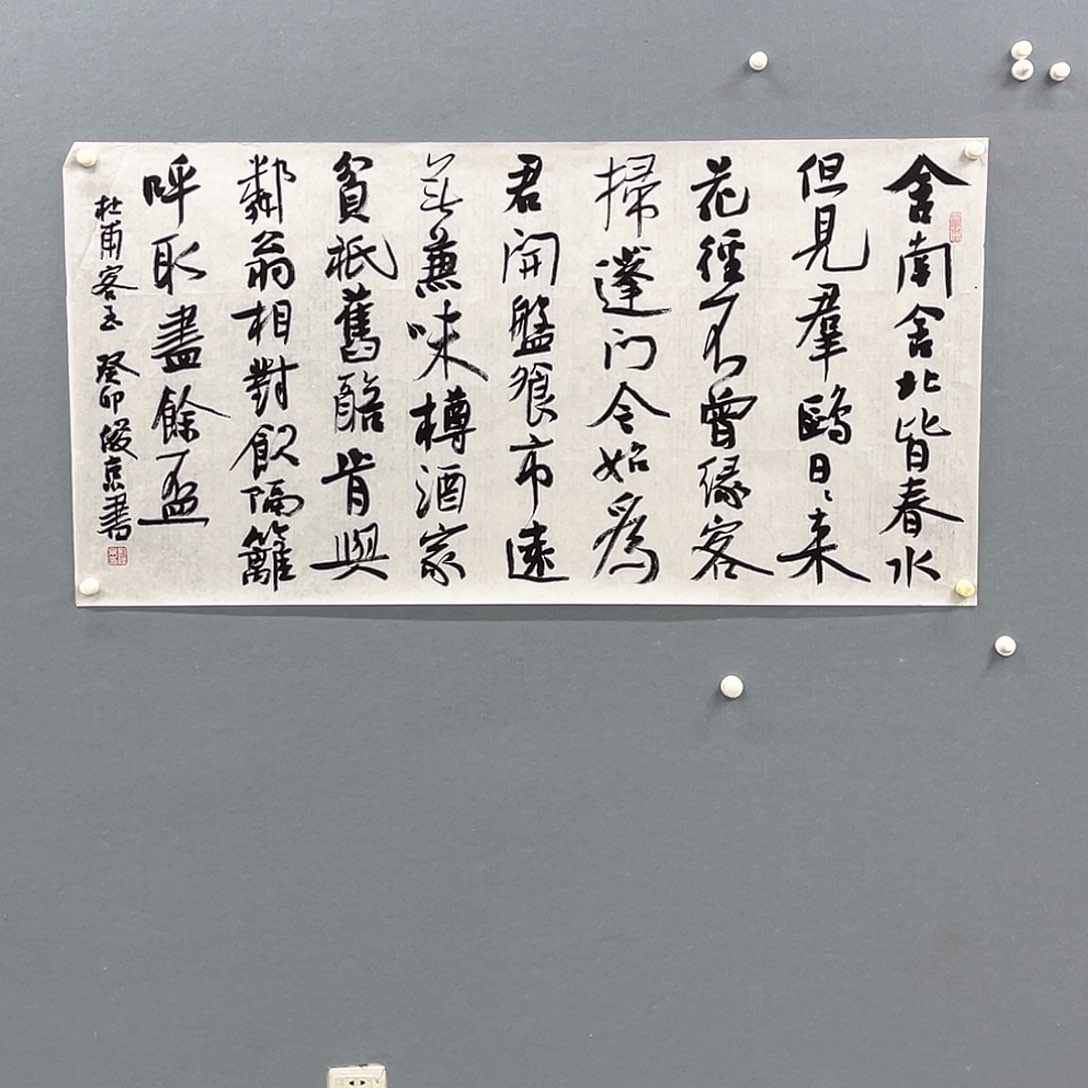 舍南舍北皆春水
但見羣鷗日〻来
花徑不曾緣客
掃蓬门今始爲
君開盤飧市遠
無兼味樽酒家
貧祇舊醅肯與
鄰翁相對飲隔籬
呼取盡餘盃
杜甫客至 癸卯 書